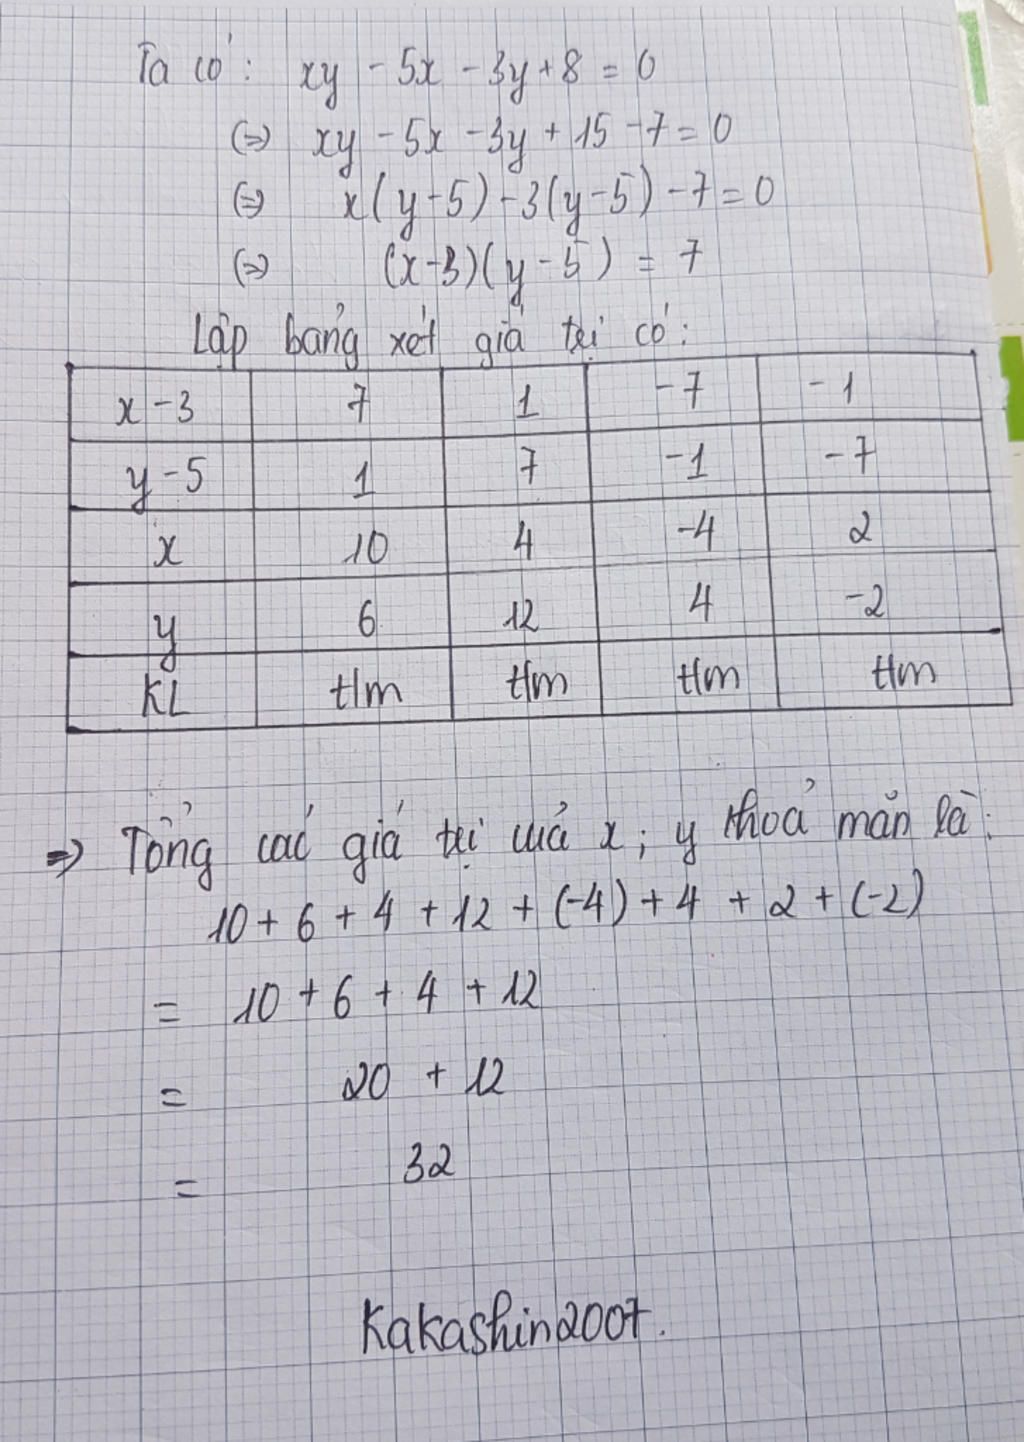 Ta có: xy - 5x - 3y + 8 = 0
(=) xy - 5x - 3y + 15 - 7 = 0
(=) x(y-5) - 3(y-5) - 7 = 0
(=) (x-3)(y-5) = 7
Lập bảng xét giá trị có:
x-3 7 1 -7 -1
y-5 1 7 -1 -7
x 10 4 -4 2
y 6 12 4 -2
KL t/m t/m t/m t/m
=> Tổng các giá trị của x; y thoả mãn là:
10 + 6 + 4 + 12 + (-4) + 4 + 2 + (-2)
= 10 + 6 + 4 + 12
= 20 + 12
= 32
Kakashin2007.